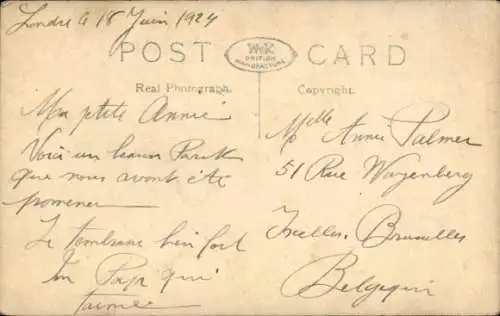 Londre le 18 Juin 1924
POST CARD
W&K
BRITISH
MANUFACTURE
Real Photograph. Copyright.
Ma ptite Annie
Voici un beau Park
que nous avont été
promener
Je bien fort
Ton Papa qui
t'aime
Melle Annie Palmer
51 Rue Wayenberg
Ixelles. Bruxelles
Belgique